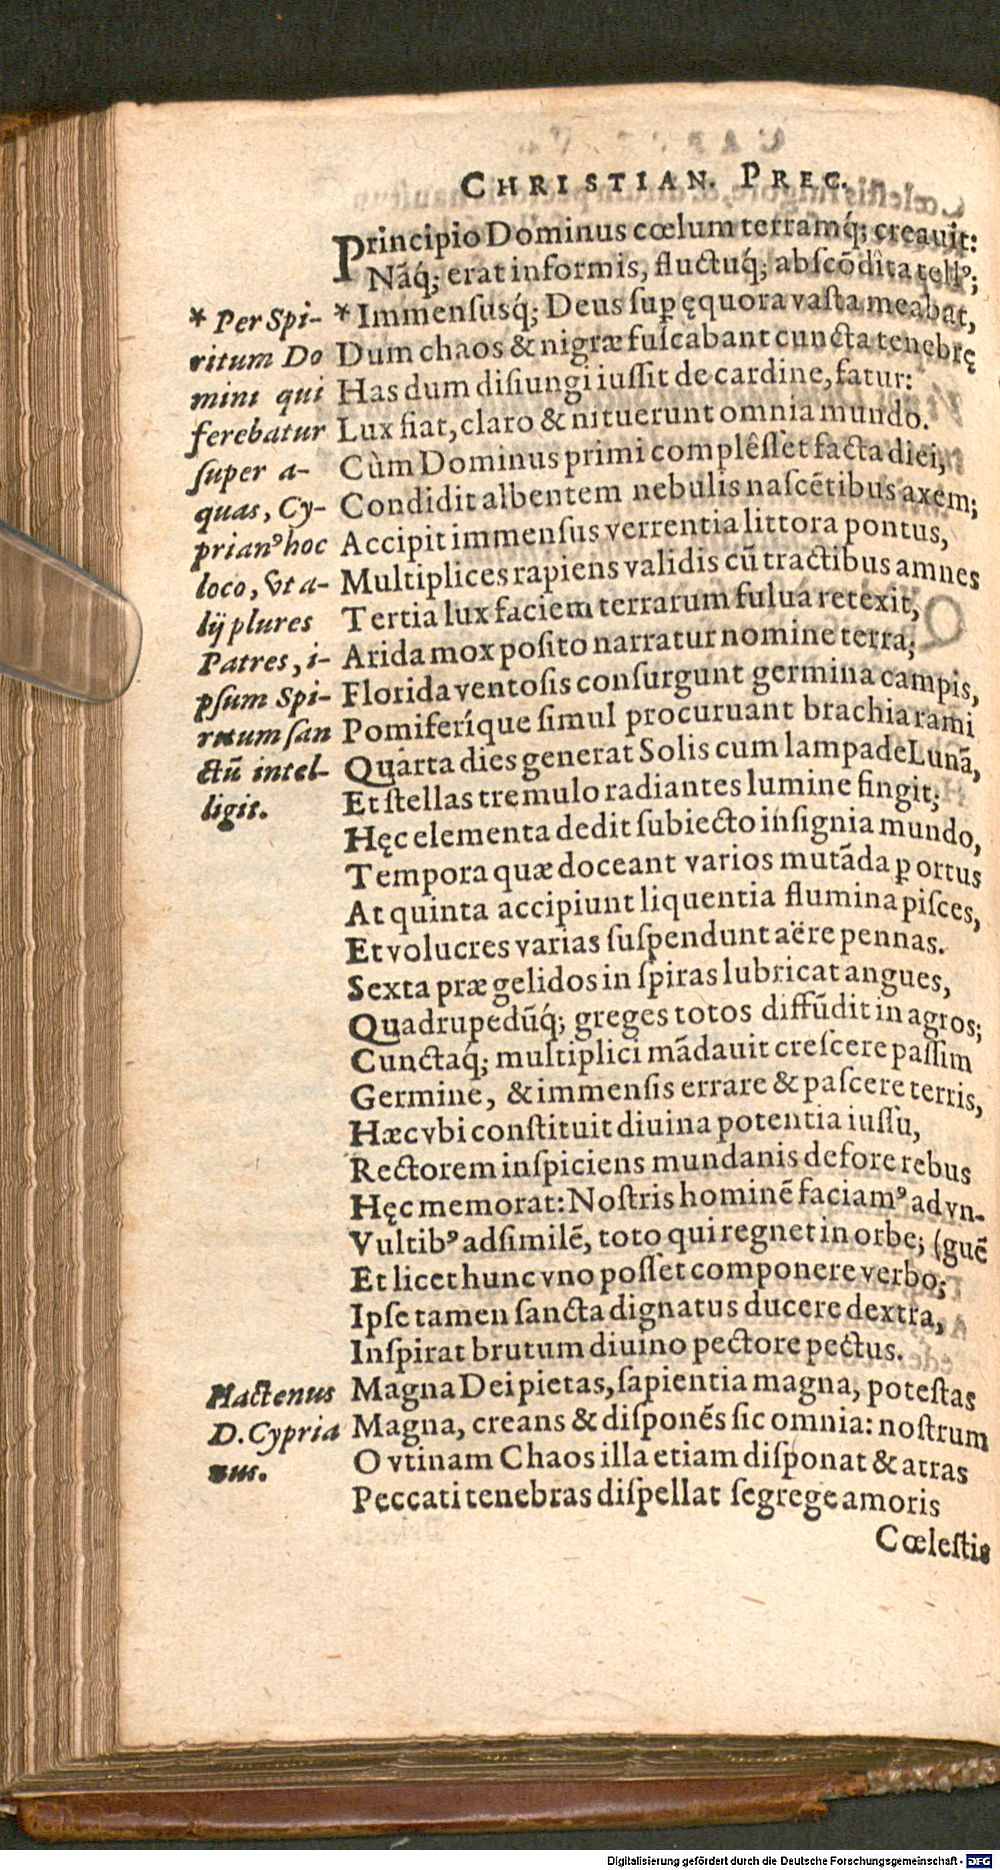 CHRISTIAN. PREC.
Principio Dominus cœlum terramq́; creauit:
Nãq́; erat informis, fluctuq́; abscõdita tell⁹;
* Immensusq́; Deus suꝑ ęquora vasta meabat,
Dum chaos & nigræ fuscabant cuncta tenebrę
Has dum disiungi iussit de cardine, fatur:
Lux fiat, claro & nituerunt omnia mundo.
Cùm Dominus primi complêsset facta diei,
Condidit albentem nebulis nascẽtibus axem;
Accipit immensus verrentia littora pontus,
Multiplices rapiens validis cũ tractibus amnes
Tertia lux faciem terrarum fulua retexit,
Arida mox posito narratur nomine terra;
Florida ventosis consurgunt germina campis,
Pomiferíque simul procuruant brachia rami
Quarta dies generat Solis cum lampade Lunã,
Et stellas tremulo radiantes lumine fingit;
Hęc elementa dedit subiecto insignia mundo,
Tempora quæ doceant varios mutãda ꝑ ortus
At quinta accipiunt liquentia flumina pisces,
Et volucres varias suspendunt aëre pennas.
Sexta præ gelidos in spiras lubricat angues,
Quadrupedũq́; greges totos diffũdit in agros;
Cunctaq́; multiplici mãdauit crescere passim
Germine, & immensis errare & pascere terris,
Hæc vbi constituit diuina potentia iussu,
Rectorem inspiciens mundanis defore rebus
Hęc memorat: Nostris hominẽ faciam⁹ ad vn-
Vultib⁹ adsimilẽ, toto qui regnet in orbe; (guẽ
Et licet hunc vno posset componere verbo;
Ipse tamen sancta dignatus ducere dextra,
Inspirat brutum diuino pectore pectus.
Magna Dei pietas, sapientia magna, potestas
Magna, creans & disponẽs sic omnia: nostrum
O vtinam Chaos illa etiam disponat & atras
Peccati tenebras dispellat segrege amoris
Cœlestis
* Per Spi-
ritum Do
mini qui
ferebatur
super a-
quas, Cy-
prian⁹ hoc
loco, vt a-
lij plures
Patres, i-
psum Spi-
ritum san
ctũ intel-
ligit.
Hactenus
D. Cypria
nus.
Digitalisierung gefördert durch die Deutsche Forschungsgemeinschaft - DFG